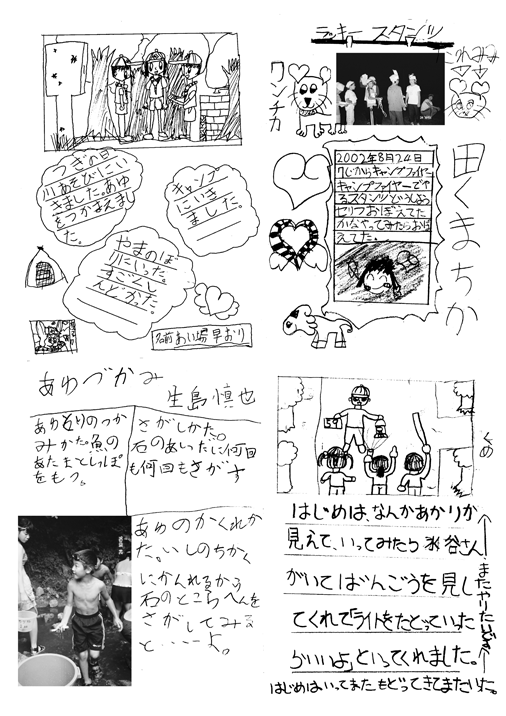 つぎの日
川あそびにい
きました。あゆ
をつかまえまし
た。
キャンプ
にいき
ました。
やまのぼ
りにいった。
すごくし
んどかた。
名前 あい場早おり
ラッキー スタンツ
ワンチカ
田くまちか
2002年8月24日
7じからキャンプファイヤー
キャンプファイヤーでや
るスタンツどうしよう
セリフおぼえてた
かなやってみたらおぼ
えてた。
あゆづかみ
生島慎也
あゆとりのつか
みかた。魚の
あたまとしっぽ
をもつ。
さがしかた。
石のあいったに何回
も何回もさがす
あゆのかくれか
た。いしのちかく
にかくれるから
石のところへんを
さがしてみる
と・・・・よ。
はじめは、なんかあかりが
見えて、いってみたら水谷さん
がいてばんごうを見し
てくれて「ライトをたどっていった
らいいよ」といってくれました。
はじめはいってまたもどってきてまたいった。
またやりたいです
くめ